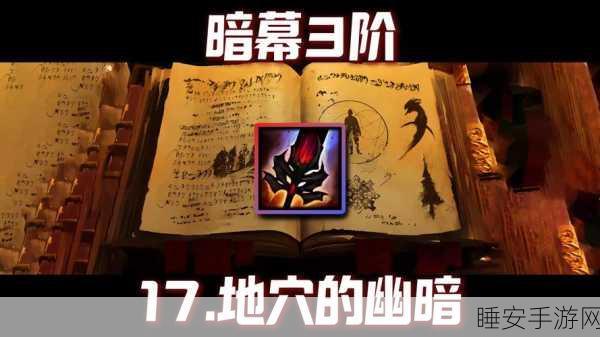 暗幕3阶
17.地穴的幽暗
睡安手游网